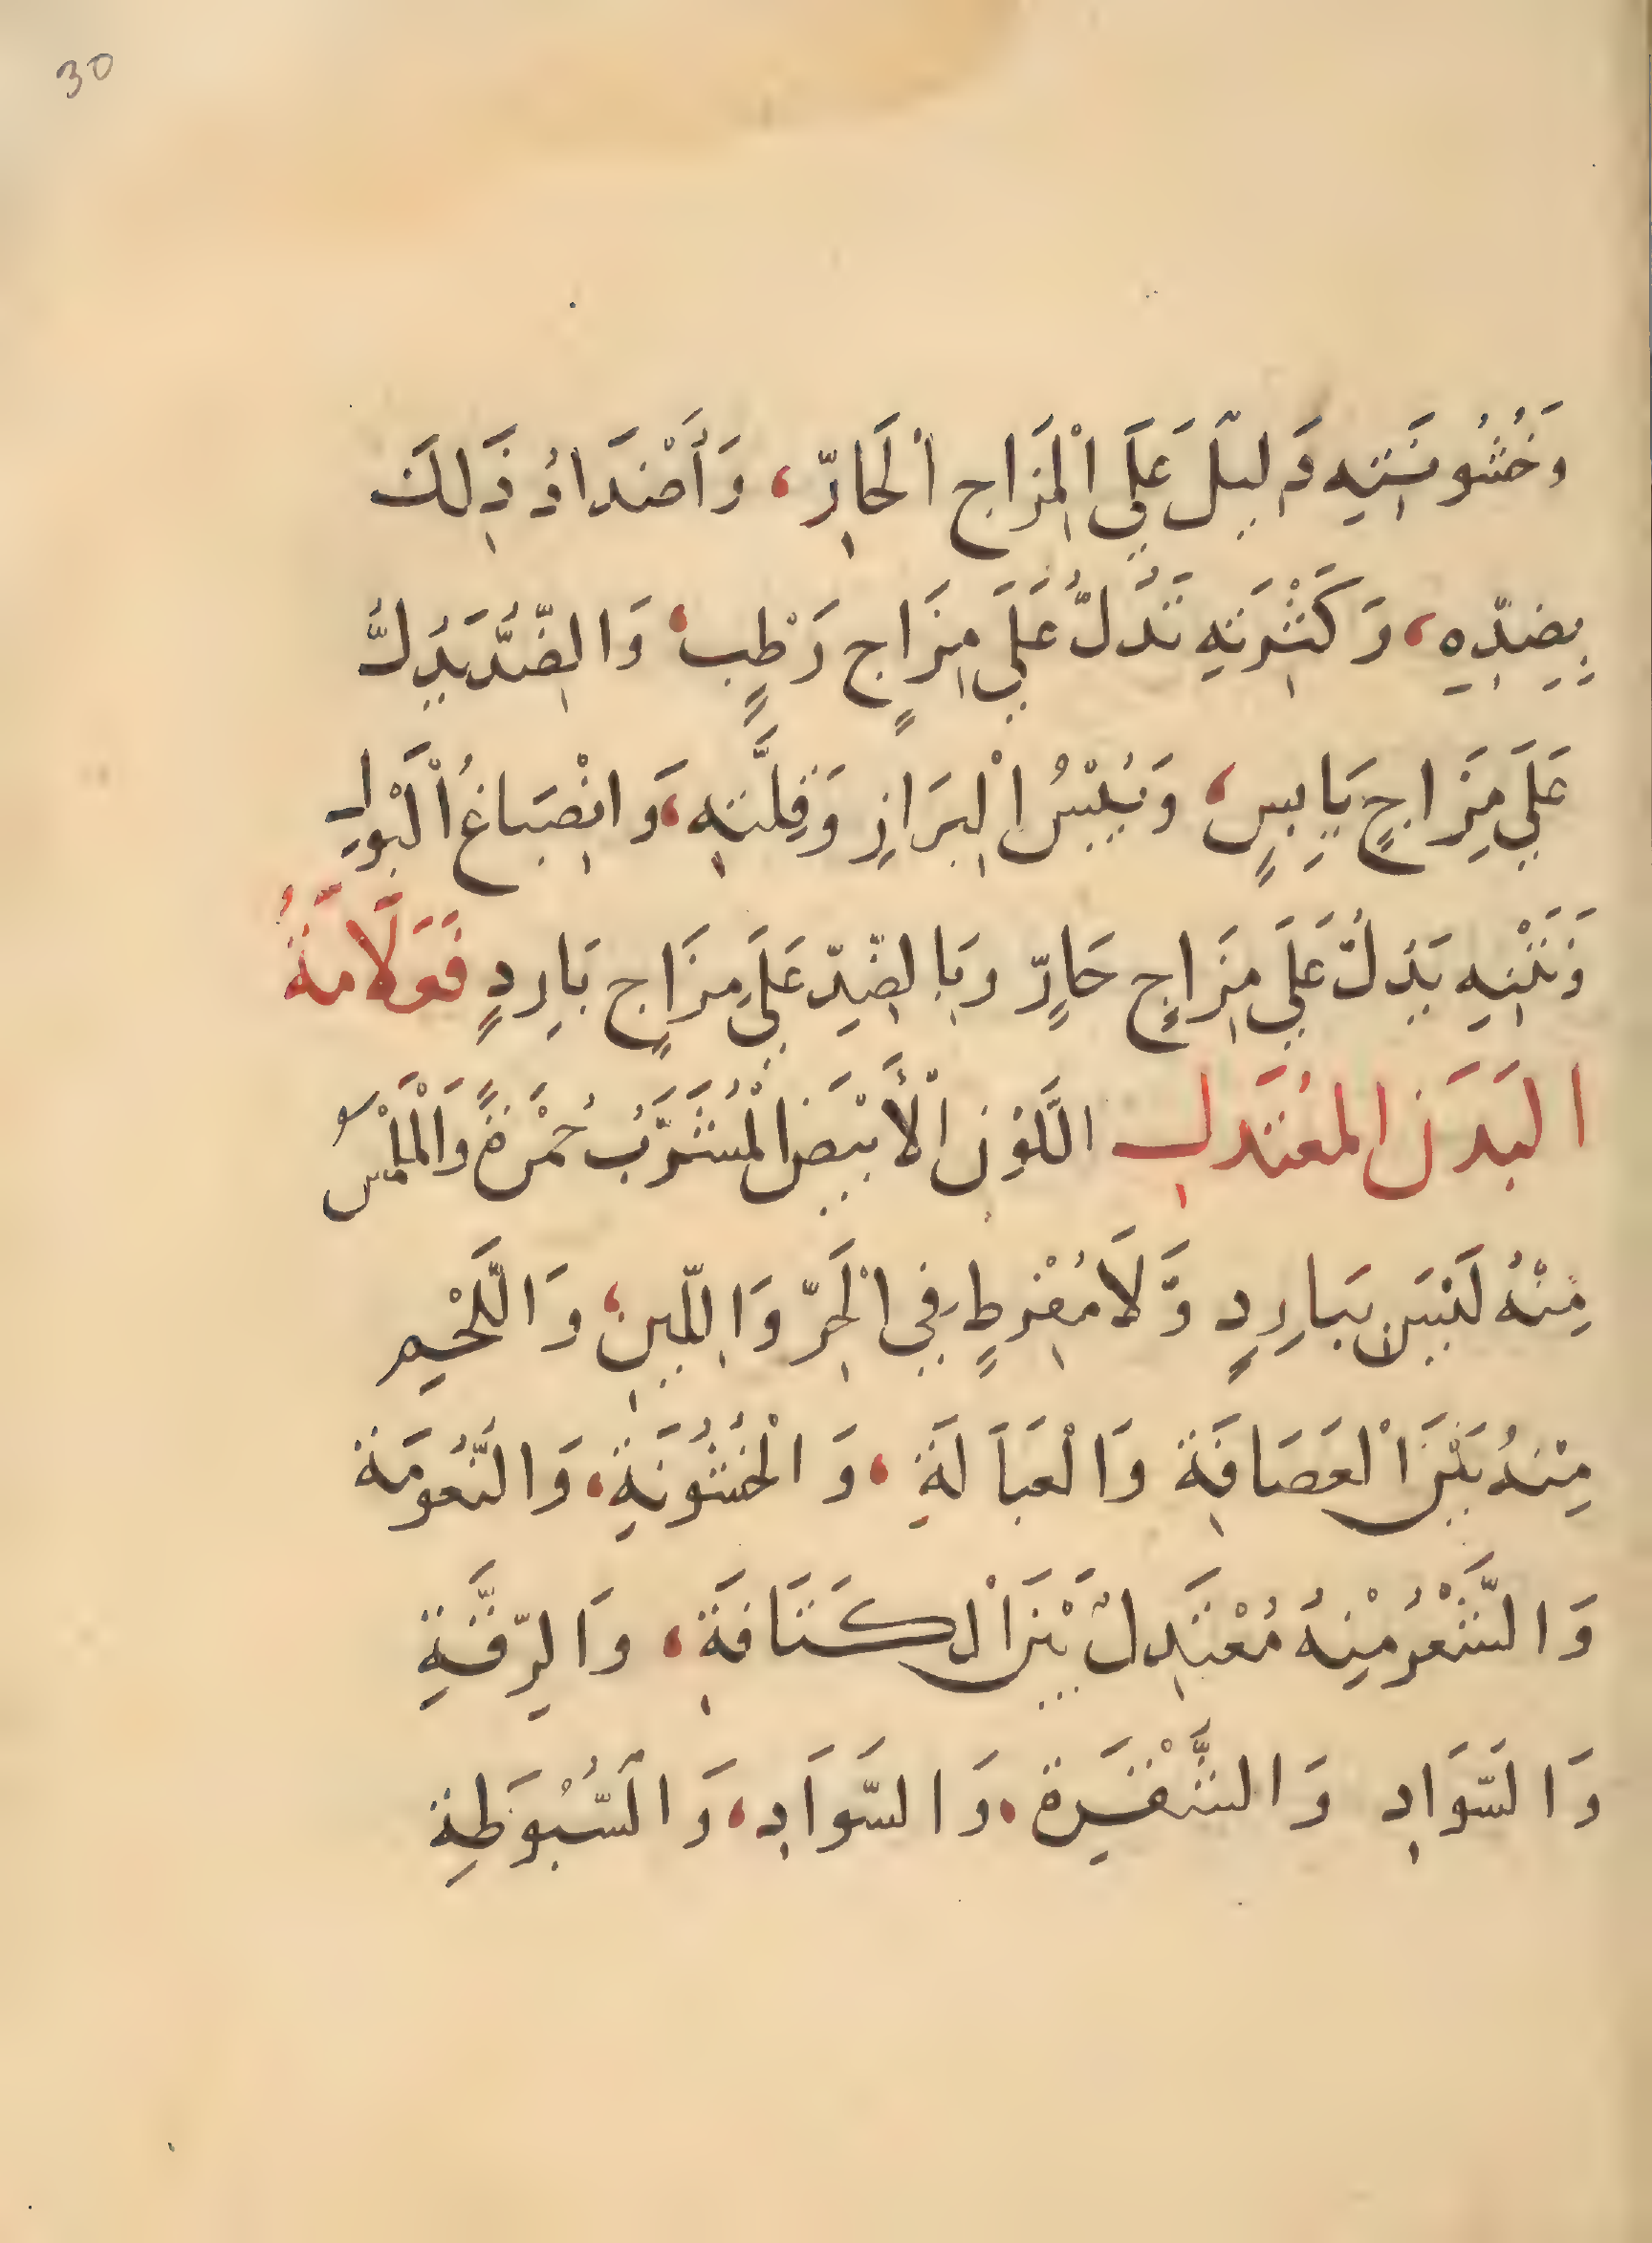 30
وَخُشُونَتِهِ دَلِيلٌ عَلَي الْمِزَاجِ الْحَارِّ، وَأَضْدَادُ ذَلِكَ
بِضِدِّهِ، وَكَثْرَتِهِ تَدُلُّ عَلَي مِزَاجٍ رَطْبٍ، وَالضِّدُّ يَدُلُّ
عَلَي مِزَاجٍ يَابِسٍ، وَيُبْسُ الْبِرَازِ وَقِلَّتِهِ، وَانْصِبَاغُ الْبَوْلِ
وَنَتْنِهِ يَدُلُّ عَلَي مِزَاجٍ حَارٍّ وَبِالضِّدِّ عَلَي مِزَاجٍ بَارِدٍ فَعَلَامَةُ
الْبَدَنِ الْمُعْتَدَلِ اللَّوْنُ الْأَبْيَضُ الْمُشَرَّبُ حُمْرَةً وَالْمَلْمَسُ
مِنْهُ لَيْسَ بِبَارِدٍ وَلَا مُفْرِطٍ فِي الْحَرِّ وَاللِّينِ، وَاللَّحْمِ
مِنْهُ بَيْنَ الْعَصَافَةِ وَالْعَبَالَةِ، وَالْخُشُونَةِ، وَالنُّعُومَة
وَالشَّعْرُ مِنْهُ مُعْتَدِلٌ بَيْنَ الْكَثَافَةِ، وَالرِّقَّةِ
وَالسَّوَادِ وَالشَّقْرَةِ. وَالسَّوَادِ، وَالسُّبُوطَةِ